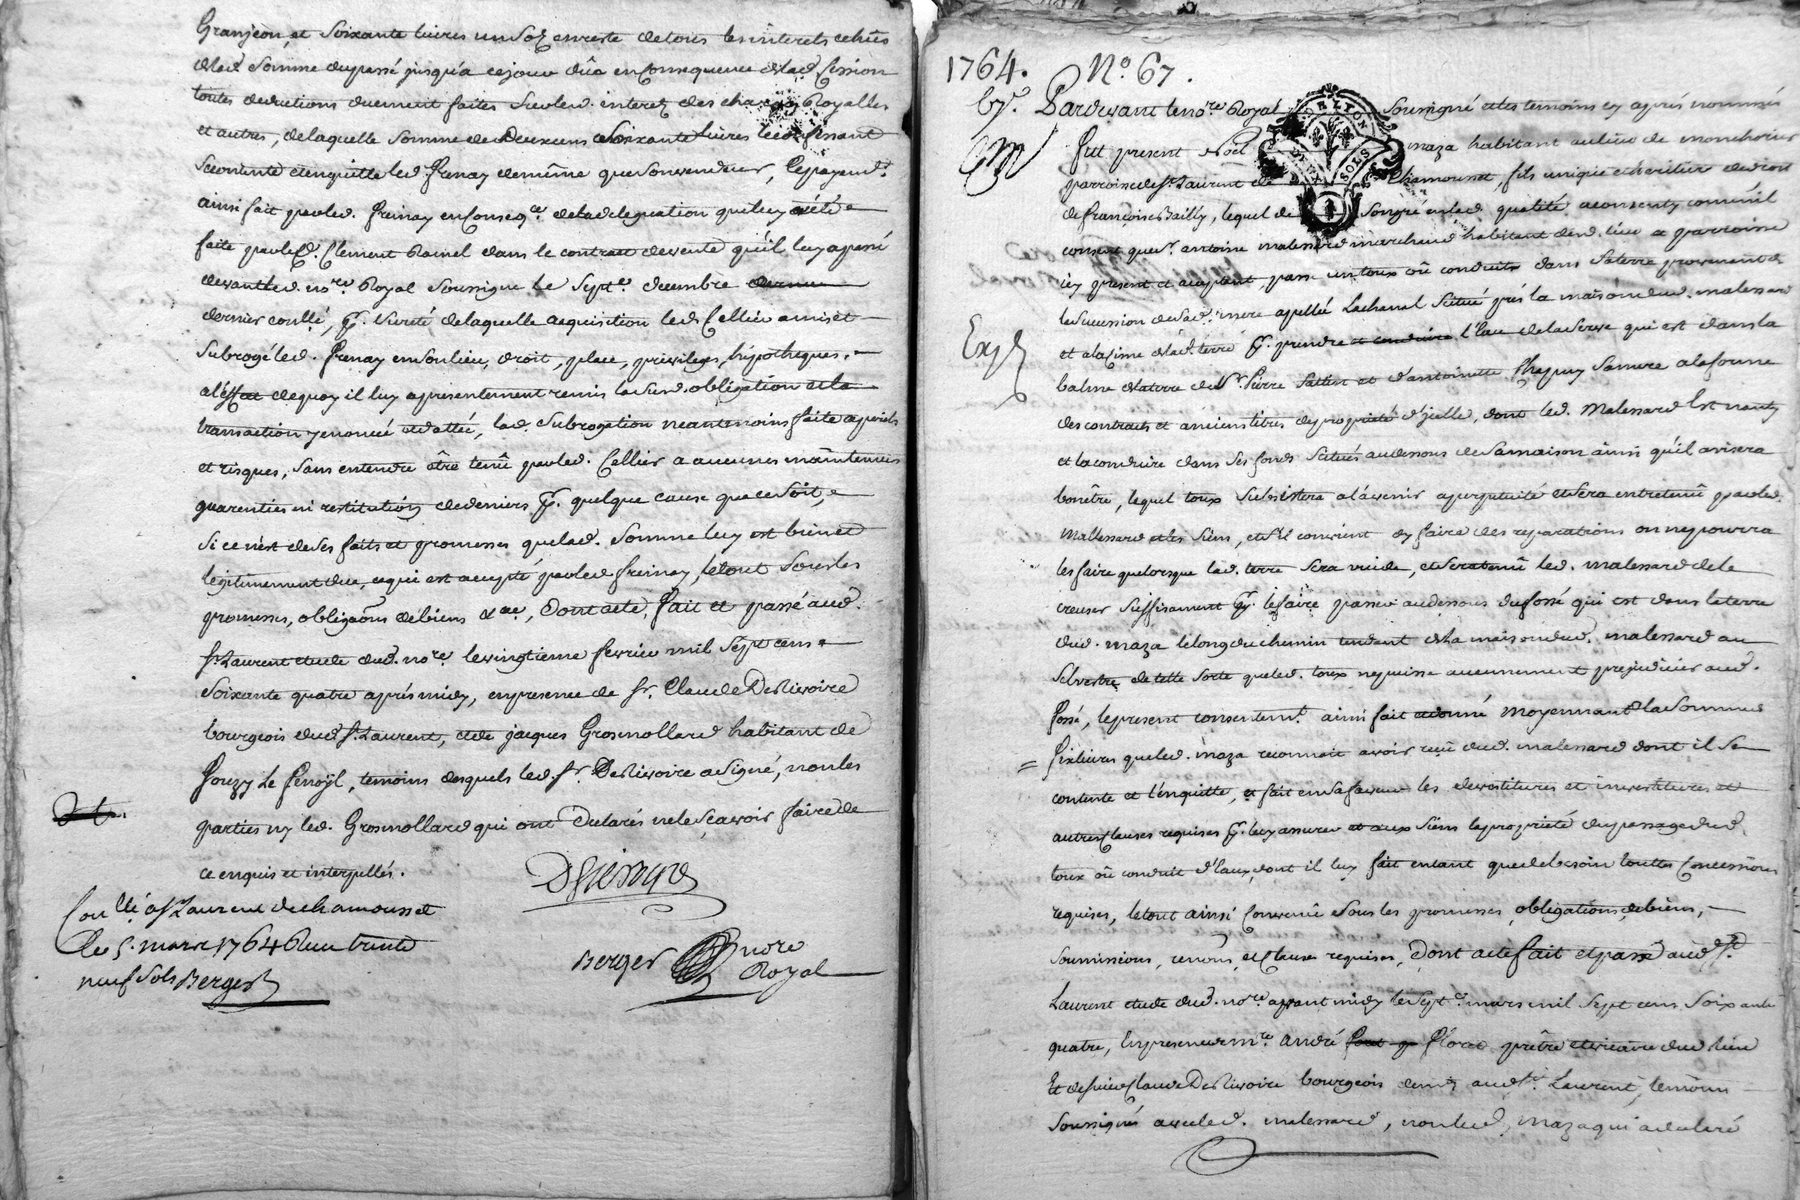 Granjeon, et Soixante livres un Sol en reste de tous les interets echûs
de lad. Somme du passé jusqu'a ce jour dûs en Consequence de lad. Cession
toutes deductions duement faites Sur led. interets des charges Royalles
et autres, de laquelle Somme de Deux cens Soixante Livres led. confessant
Se contente et en quitte led. frenay de même que Son vendeur, le payemt.
ainsi fait par led. freinay en Conseqce. de la delegation qui luy a été
faite par led. Clement Ramel dans le contrat de vente qu'il luy a passé
devant led. nore. Royal Soussigné le Sept. decembre
dernier coullé, pr. Sureté de laquelle acquisition led. Cellier a mis et
Subrogé led. frenay en Son lieu, droit, place, privileges, hypotheques,
a l'effet de quoy il luy a presentement remis la Susd. obligation et la
transaction y enoncé et dattée, lad. Subrogation neantmoins faite a perils
et risques, Sans entendre être tenû par led. Cellier a aucunes maintenues
guarenties ni restitution de deniers pr. quelque cause que ce Soit,
Si ce n'est de Ses faits et promesses que lad. Somme luy est bien et
legitimement due, ce qui est accepté par led. freinay, le tout Sous les
promesses, obligaons de biens &ae, Dont acte, fait et passé aud.
St. Laurent etude dud. nore. le vingtieme fevrier mil Sept cens
Soixante quatre après midy, en presence de Sr. Claude Desrivoire
bourgeois dud. St. Laurent, et de jacques Grosmollard habitant de
Pouzy Le fenoÿl, temoins desquels led. Sr. Desrivoire a Signé, non les
parties ny led. Grosmollard qui ont Declarés ne le Sçavoir faire de
ce enquis et interpellés.
Desrivoire
Conllé a St Laurent de chamousset
le 5. mars 1764 Reçu trente
neuf Sols Berger
Berger nore
Royal
1764. No. 67.
Pardevant le nore. Royal Soussigné et les temoins cy après nommés
Fut present Noël maza habitant au lieu de monchorier
parroisse de St. Laurent de Chamousset, fils unique et heritier de droit
de françoise Bailly, lequel de Son gré en lad. qualité a consenty comme il
consent que Sr. antoine malessard marchand habitant dud. lieu et parroisse
icy present et acceptant, passe un toux oû conduit dans Sa terre provenant de
la Succession de Sad. mere apellé Lachanal Scitué près la maison dud. malessard
et a la Cime de lad. terre pr. prendre et conduire l'Eau de la Serve qui est dans la
balme de la terre de Sr. Pierre Sattin et d'antoinette Thepuy Sa mere a la forme
des contrats et anciens titres de proprieté d'jcelle, dont led. Malessard Est nanty
et la conduire dans Ses fonds Scitués au dessous de Sa maison ainsi qu'il avisera
bon être, lequel toux Subsistera a l'avenir a perpetuité et Sera entretenû par led.
Malessard et les Siens, et S'il convient d'y faire des reparations on ne pourra
les faire que lorsque lad. terre Sera vuide, et Sera tenû led. malessard de le
creuser Suffisament pr. le faire passer au dessous du fossé qui est dans la terre
dud. maza le long du chemin tendant de la maison dud. malessard au
Silvestre de telle Sorte que led. toux ne puisse aucunement prejudicier aud.
fossé, le present consentemt. ainsi fait et donné moyennant la Somme de
Six livres que led. maza reconnait avoir reçû dud. malessard dont il Se
contente et l'en quitte, et fait en Sa faveur les devestitures et investitures et
autres Clauses requises pr. luy assurer et aux Siens la proprieté du passage dud.
toux oû conduit d'Eaux, dont il luy fait en tant que de besoin touttes Concessions
requises, le tout ainsi Convenû et Sous les promesses, obligations de biens,
Soumissions, renons. et Clauses requises, Dont acte fait et passé aud. St.
Laurent etude dud. nore. avant midy le Sept. mars mil Sept cens Soixante
quatre, En presence de mre. andré florat prêtre et vicaire dud. lieu
Et de Sieur Claude Desrivoire bourgeois demt. aud. St. Laurent, temoins
Soussignés avec led. malessard, non led. maza qui a declaré
Exp.
LYON
DEUX SOLS